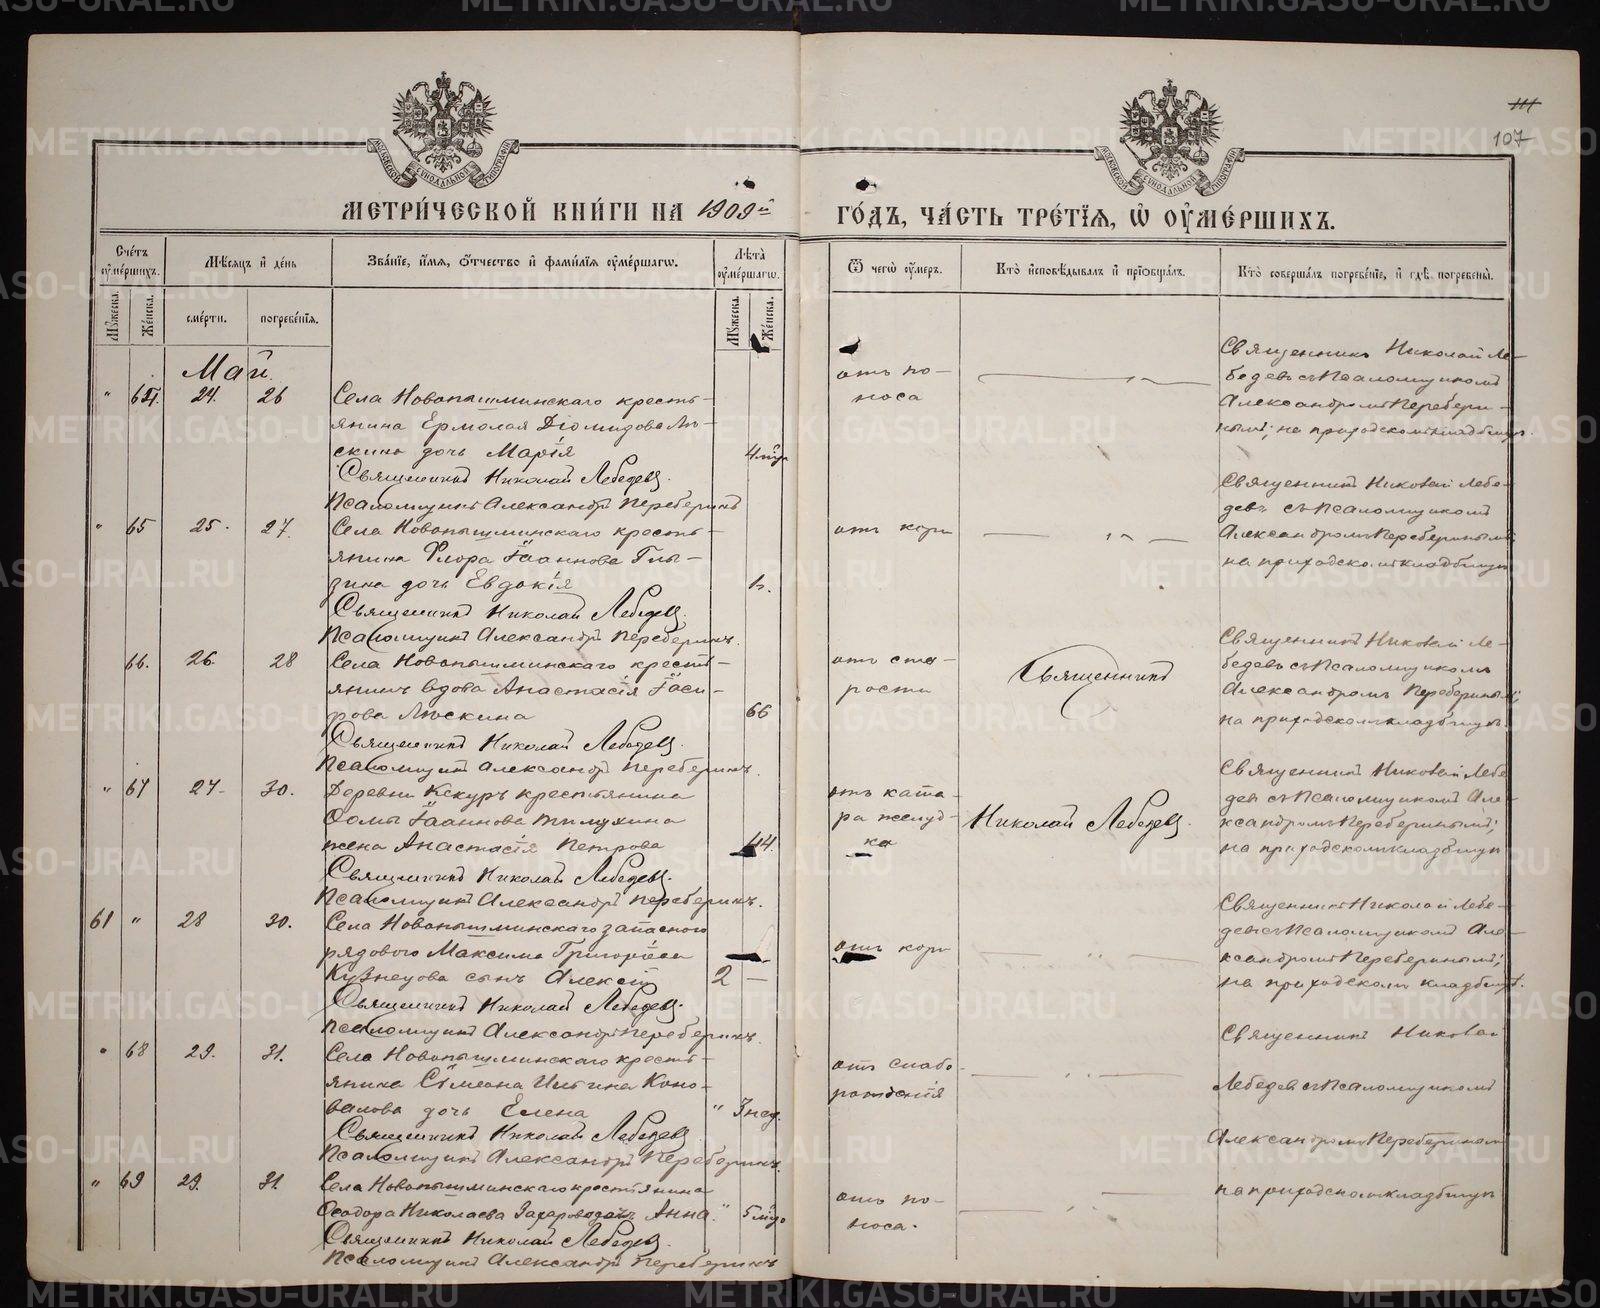 111
107
МОСКОВСКОЙ СѴНОДАЛЬНОЙ ТИПОГРАФІИ
МОСКОВСКОЙ СѴНОДАЛЬНОЙ ТИПОГРАФІИ
МЕТРИ́ЧЕСКОЙ КНИ́ГИ НА 1909й
ГО́ДЪ, ЧА́СТЬ ТРЕ́ТІѦ, Ѡ҆ ОУ҆МЕ́РШИХЪ.
Сче́тъ оу҆ме́ршихъ.
Мꙋ́жеска.
Же́нска.
Мѣ́сяцъ и҆ де́нь
сме́рти.
погребе́нїѧ.
Зва́нїе, и҆́мѧ, ѻ҆́тчество и҆ фами́лїѧ оу҆ме́ршагѡ.
Лѣ̀та оу҆ме́ршагѡ.
Мꙋ́жеска.
Же́нска.
Ѿ чегѡ̀ оу҆́меръ.
Кто̀ и҆сповѣ́дывалъ и҆ прїѡбща́лъ.
Кто̀ соверша́лъ погребе́нїе, и҆ гдѣ̀ погребены̀.
Май
" 64. 24. 26
Села Новопышминскаго кресть-
янина Ермолая Діомидова Лю-
скина дочь Марія
Священникъ Николай Лебедевъ.
Псаломщикъ Александръ Переберинъ
отъ по-
носа
Священникъ Николай Ле-
бедевъ съ Псаломщикомъ
Александромъ Перебери-
нымъ; на приходскомъ кладбищѣ.
" 65 25. 27.
Села Новопышминскаго кресть-
янина Флора Іоаннова Глы-
зина дочь Евдокія
Священникъ Николай Лебедевъ.
Псаломщикъ Александръ Переберинъ.
отъ кори
Священникъ Николай Лебе-
девъ съ Псаломщикомъ
Александромъ Переберинымъ;
на приходскомъ кладбищѣ
66. 26. 28
Села Новопышминскаго кресть-
янина вдова Анастасія
Люскина
66
Священникъ Николай Лебедевъ.
Псаломщикъ Александръ Переберинъ.
отъ ста-
рости
Священникъ
Священникъ Николай Ле-
бедевъ съ Псаломщикомъ
Александромъ Переберинымъ;
на приходскомъ кладбищѣ.
" 67 27. 30.
Деревни крестьянина
Ѳомы Іоаннова
жена Анастасія Петрова
44.
Священникъ Николай Лебедевъ.
Псаломщикъ Александръ Переберинъ.
отъ ката-
ра желуд-
ка
Николай Лебедевъ.
Священникъ Николай Лебе
девъ съ Псаломщикомъ Але-
ксандромъ Переберинымъ;
на приходскомъ кладбищѣ
61 " 28 30.
Села Новопышминскаго запаснаго
рядового Максима Григорьева
Кузнецова сынъ Алексій
2 —
Священникъ Николай Лебедевъ.
Псаломщикъ Александръ Переберинъ.
отъ кори
Священникъ Николай Лебе-
девъ съ Псаломщикомъ Але-
ксандромъ Переберинымъ;
на приходскомъ кладбищѣ.
" 68 29. 31.
Села Новопышминскаго кресть-
янина Сѵмеона Ильина Коно-
валова дочь Елена
" 3 нед.
Священникъ Николай Лебедевъ
Псаломщикъ Александръ Переберинъ.
отъ слабо-
рожденія
Священникъ Николай
Лебедевъ съ Псаломщикомъ
Александромъ Переберинымъ
на приходскомъ кладбищѣ
" 69 29. 31.
Села Новопышминскаго крестьянина
Ѳеодора Николаева Захарова дочь Анна
Священникъ Николай Лебедевъ.
Псаломщикъ Александръ Переберинъ
отъ по-
носа.
METRIKI.GASO-URAL.RU